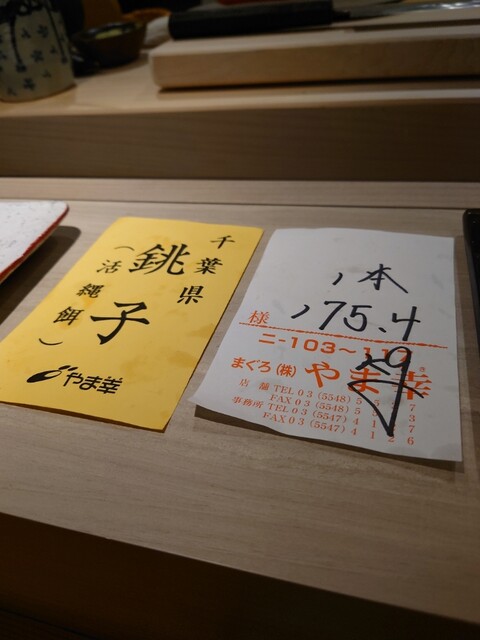 千葉県
銚子
（活縄餌）
やま幸
1本
175.4
様
ニ-103〜
まぐろ(株)やま幸
店舗 TEL 03 (5548)
FAX 03 (5548)
事務所 TEL 03 (5547)
FAX 03 (5547) 4126